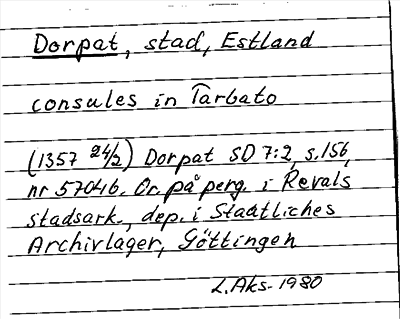 Dorpat, stad, Estland
consules in Tarbato
(1357 24/2) Dorpat SD 7:2, s.156,
nr 5704b. Or. på perg. i Revals
stadsark., dep. i Staatliches
Archivlager, Göttingen
L. Aks- 1980